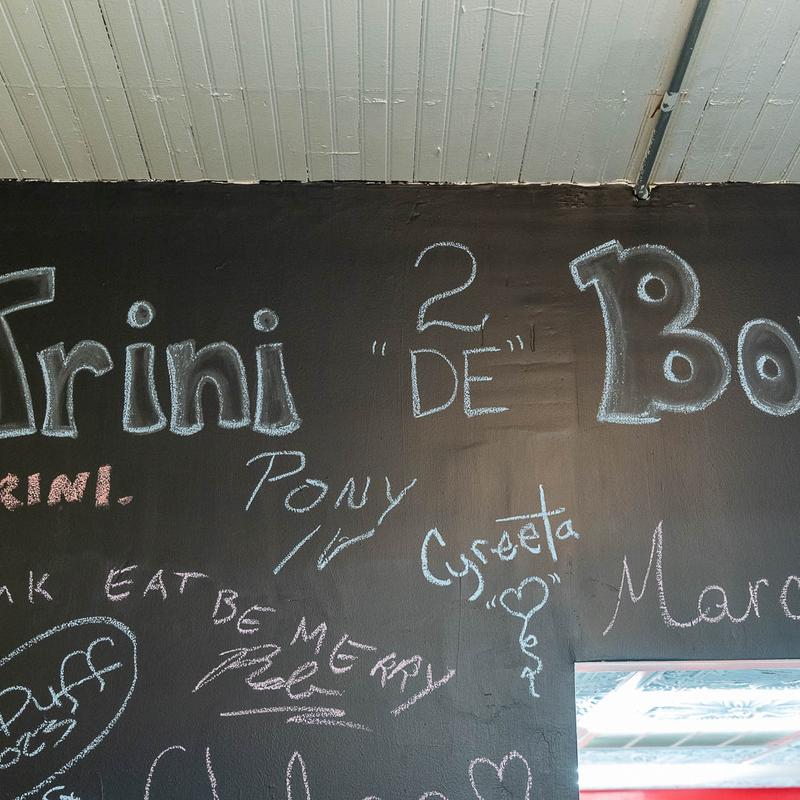 Trini "2 DE" Bo
RINI.
PONY
IV
Cyreeta
Marc
NK EAT BE MERRY
Puff